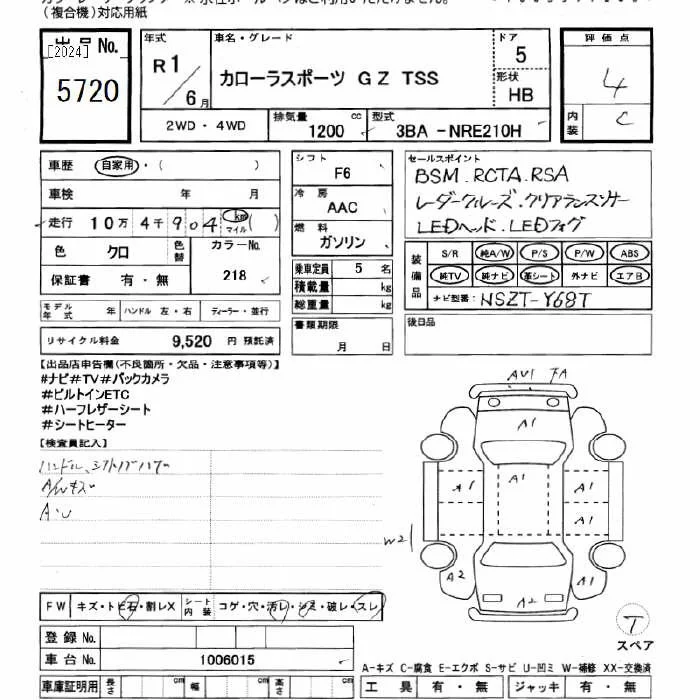 (複合機)対応用紙
出品 No.
[2024]
5720
年式
R1/6月
車名・グレード
カローラスポーツ GZ TSS
ドア
5
形状
HB
評価点
4
内装
C
2WD・4WD
排気量
1200 cc
型式
3BA -NRE210H
車歴 自家用・( )
車検 年 月
走行 10万 4千 904 km マイル ( )
色 クロ
色替
カラーNo.
218
保証書 有・無
シフト
F6
冷房
AAC
燃料
ガソリン
乗車定員 5 名
積載量 kg
総重量 kg
セールスポイント
BSM.RCTA.RSA
レーダークルーズ.クリアランスソナー
LEDヘッド.LEDフォグ
装備品
S/R 純A/W P/S P/W ABS
純TV 純ナビ 革シート 外ナビ エアB
ナビ型番: NSZT-Y68T
モデル年式 年
ハンドル 左・右
ディーラー・並行
リサイクル料金 9,520 円 預託済
書類期限
月 日
後日品
【出品店申告欄(不良箇所・欠品・注意事項等)】
#ナビ#TV#バックカメラ
#ビルトインETC
#ハーフレザーシート
#シートヒーター
【検査員記入】
ハンドル、シフトノブハゲ
A/Wキズ
A・U
AU1 FA
A1
A1
A1
A1
A1
W2
A2
A2
A1
FW
キズ・トビ石・割レX
シート内装
コゲ・穴・汚レ・シミ・破レ・スレ
T
スペア
登録 No.
車台 No. 1006015
A-キズ C-腐食 E-エクボ S-サビ U-凹ミ W-補修 XX-交換済
車庫証明用 長さ cm 幅 cm 高さ cm
工具 有・無
ジャッキ 有・無